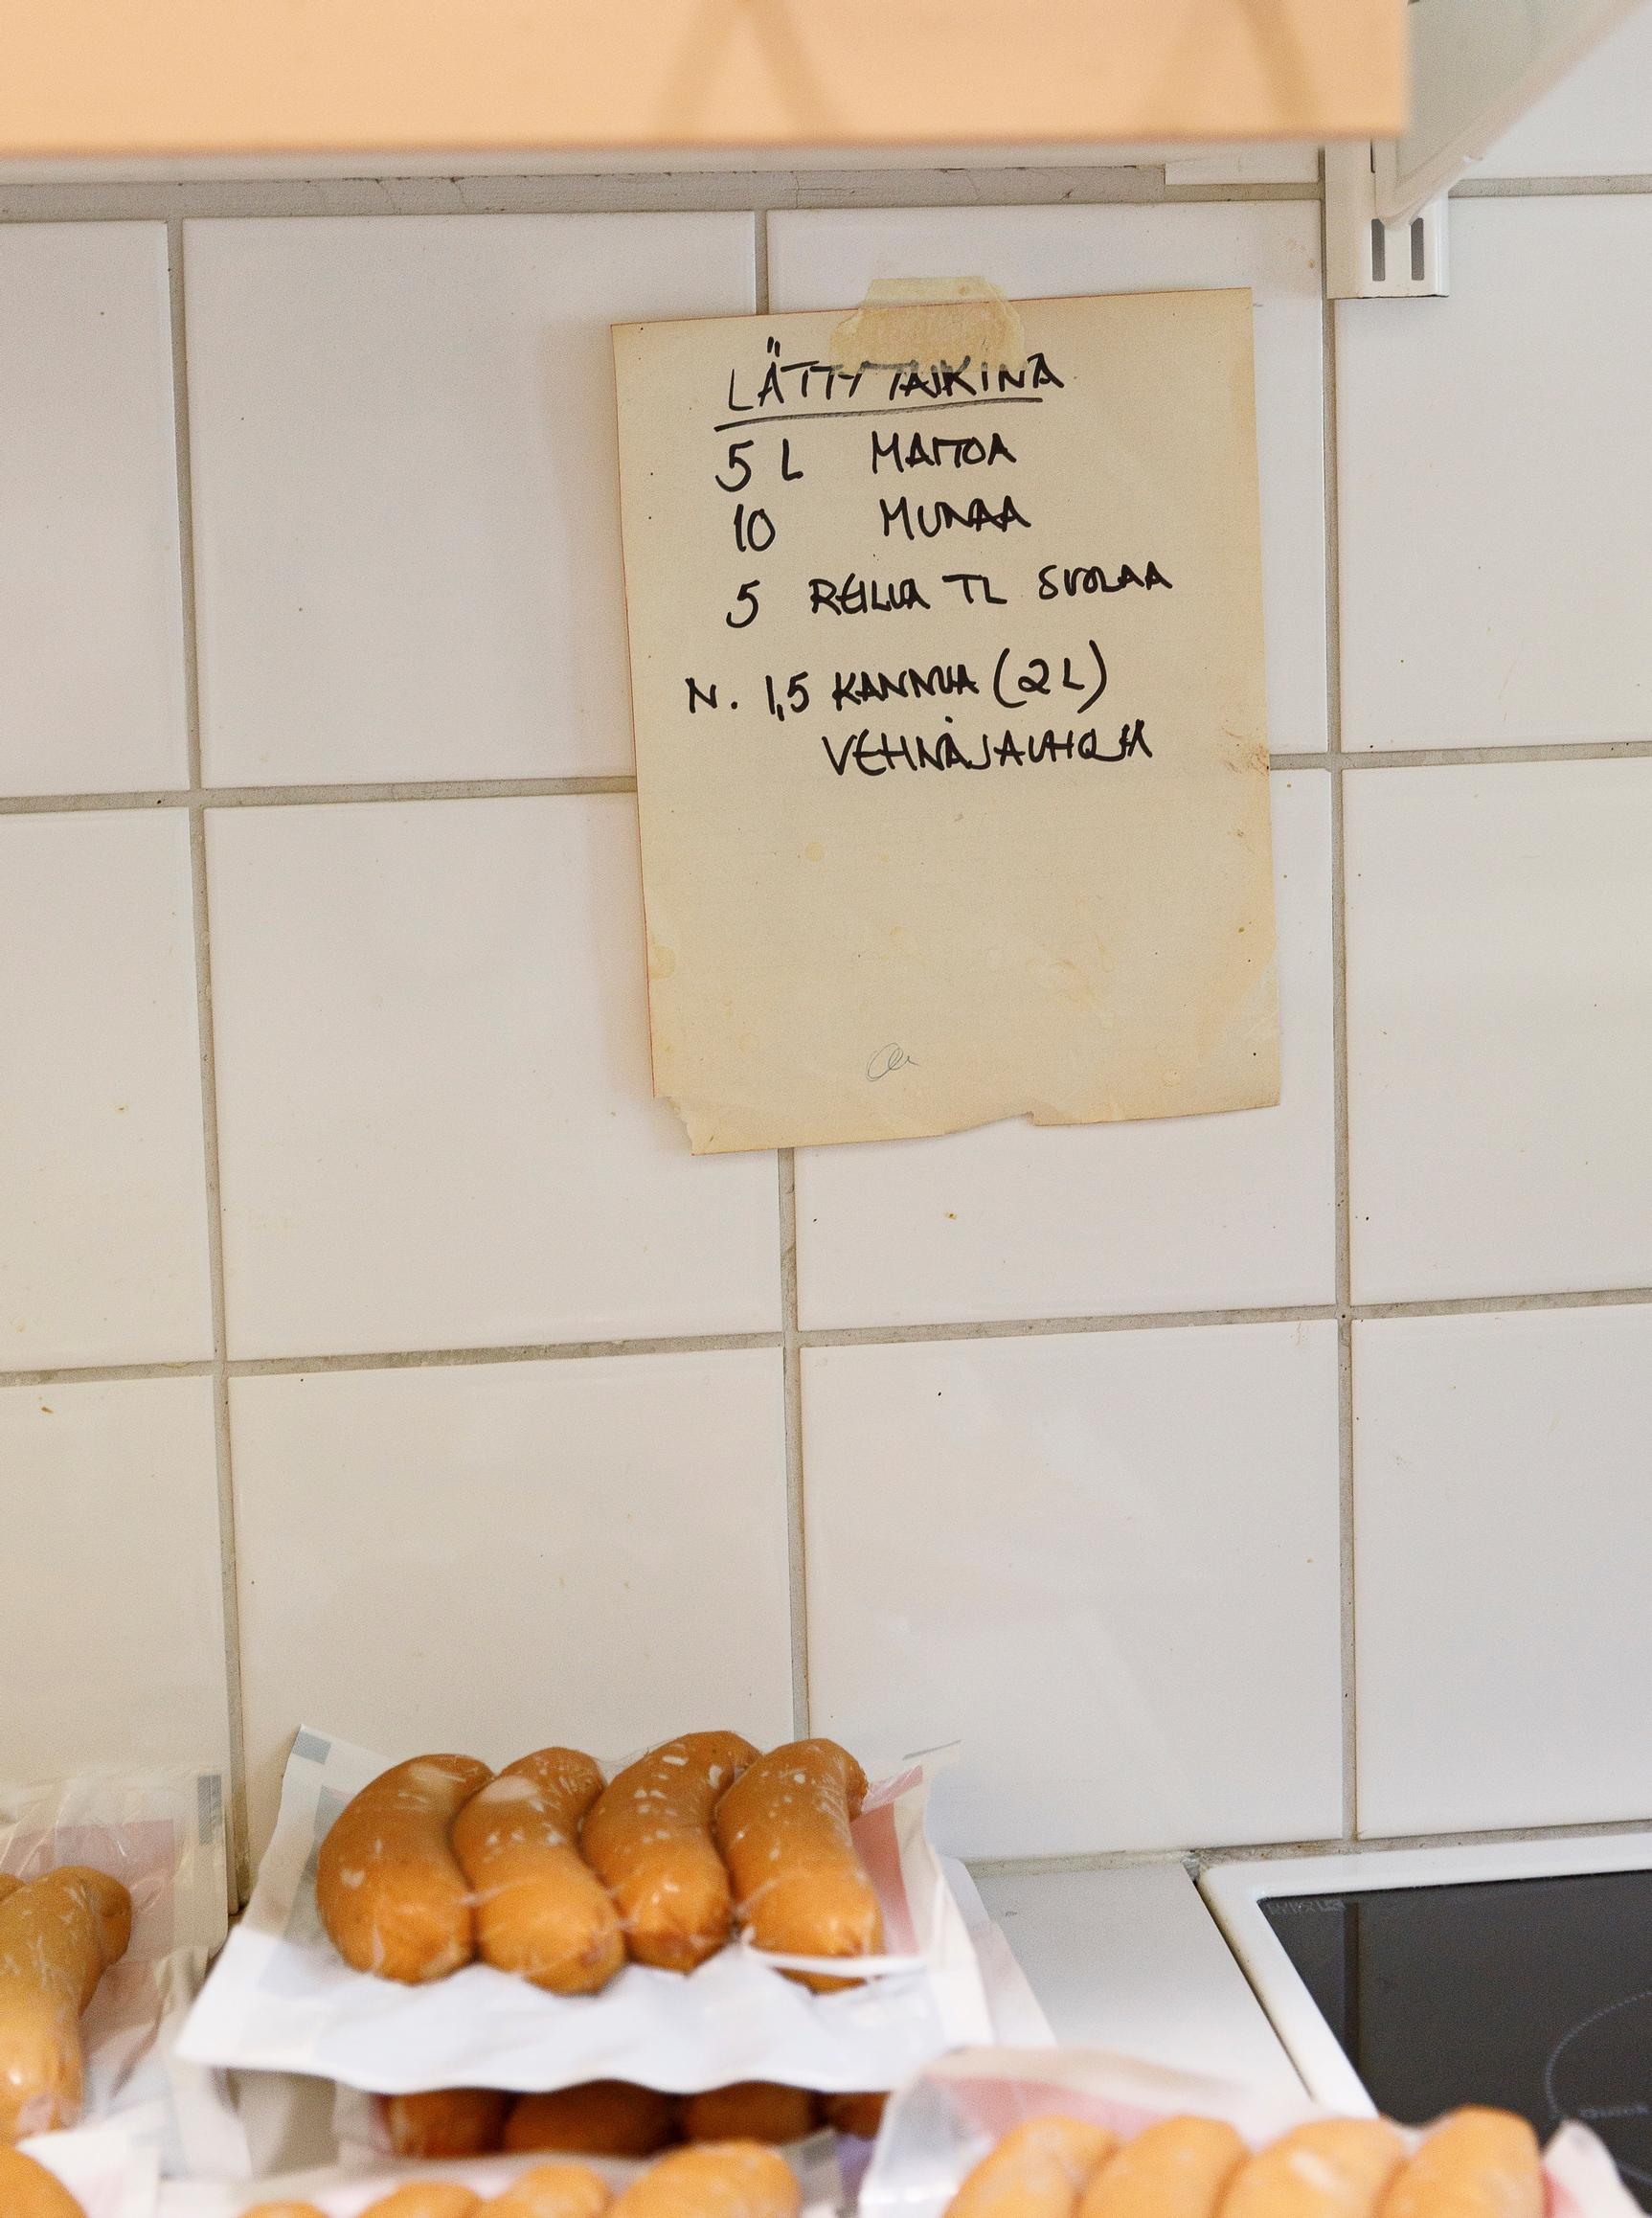 LÄTTYTAIKINA
5 L MAITOA
10 MUNAA
5 REILUA TL SUOLAA
N. 1,5 KANNUA (2 L)
VEHNÄJAUHOJA